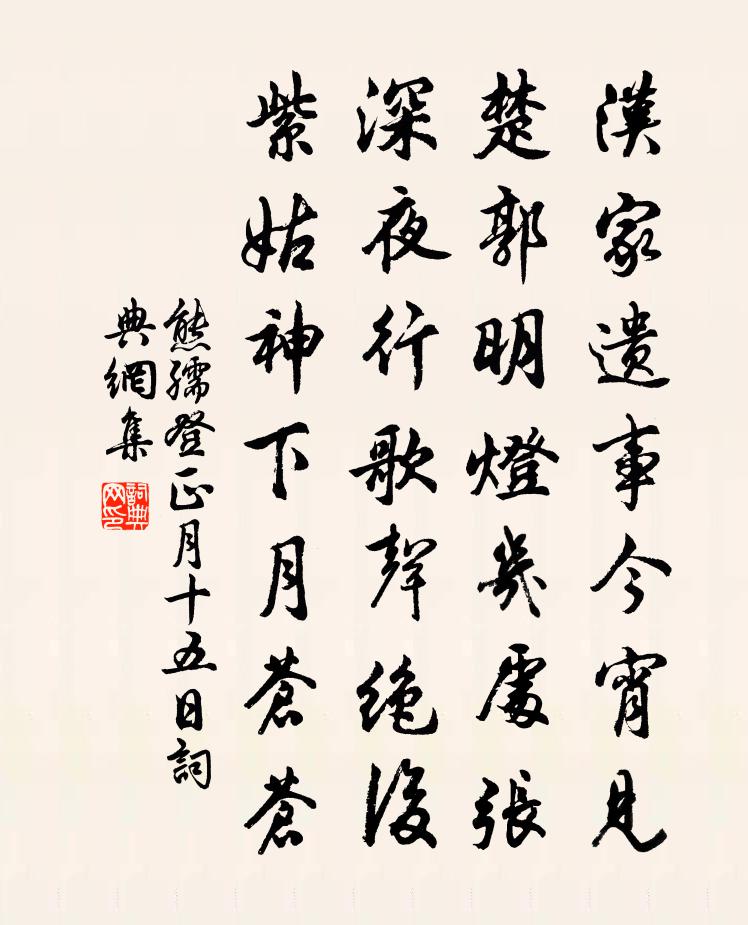 漢家遺事今宵見
楚郭明燈幾處張
深夜行歌聲絕後
紫姑神下月蒼蒼
熊孺登正月十五日詞
典網集
詞典
网印